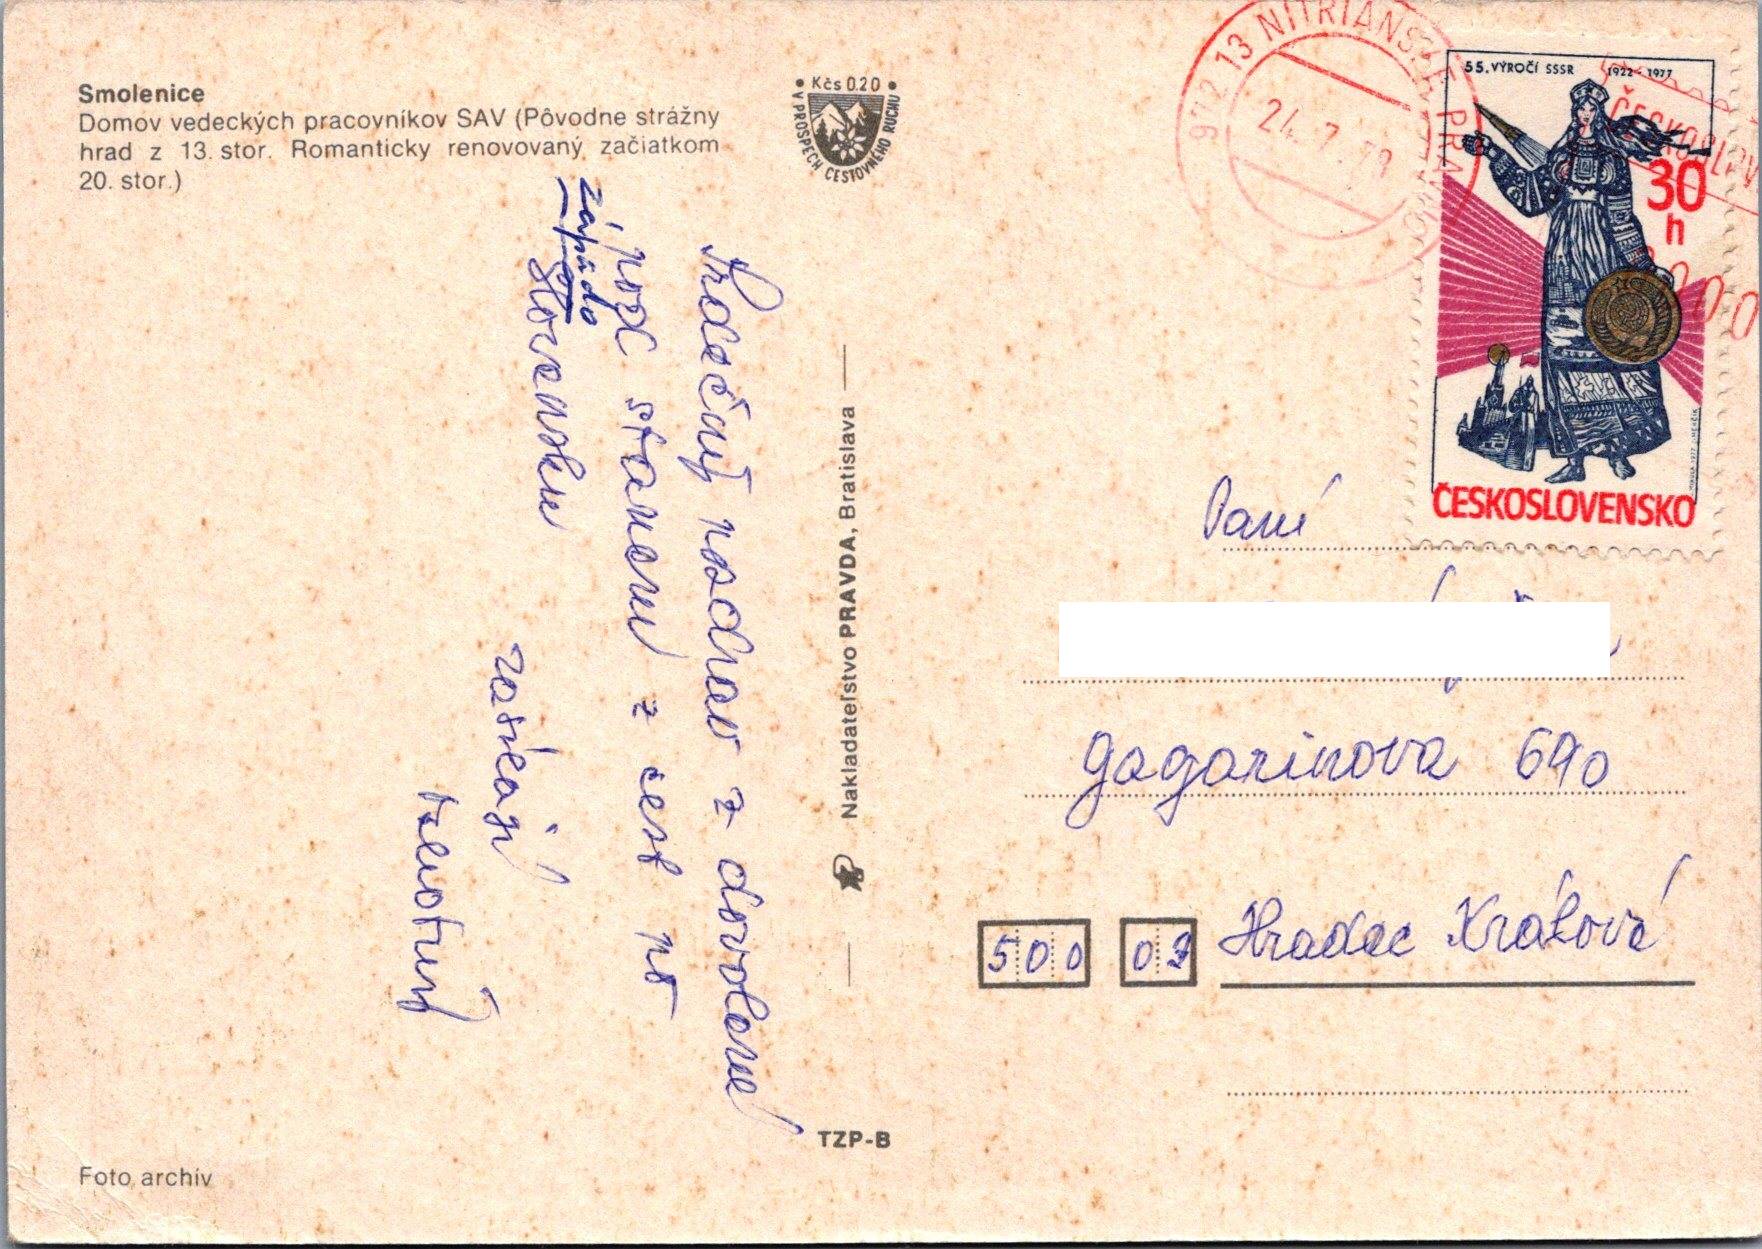 Smolenice
Domov vedeckých pracovníkov SAV (Pôvodne strážny
hrad z 13. stor. Romanticky renovovaný začiatkom
20. stor.)
• Kčs 0.20 •
V PROSPECH CESTOVNÉHO RUCHU
Srdečný pozdrav z dovolené
pod stanem z cest po
západo
Slovensku
zasílají
Nakladateľstvo PRAVDA, Bratislava
TZP-B
Foto archív
972 13 NITRIANSKE PRAVNO
24.7.79
55. VÝROČÍ SSSR 1922-1977
30
h
ČESKOSLOVENSKO
Paní
Gagarinova 690
500 03 Hradec Králové